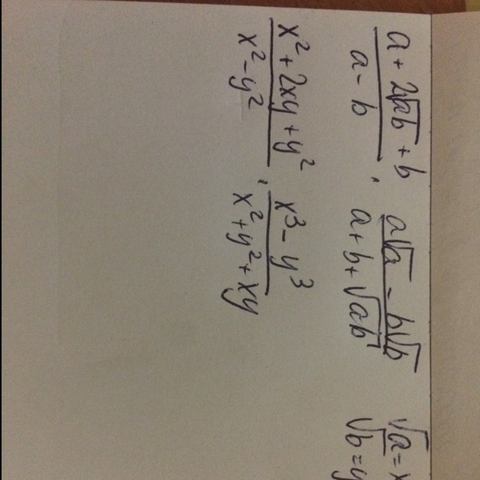 (a + 2√ab + b)/(a - b) · (a√a - b√b)/(a + b + √ab) √a = x √b = y
(x² + 2xy + y²)/(x² - y²) · (x³ - y³)/(x² + y² + xy)